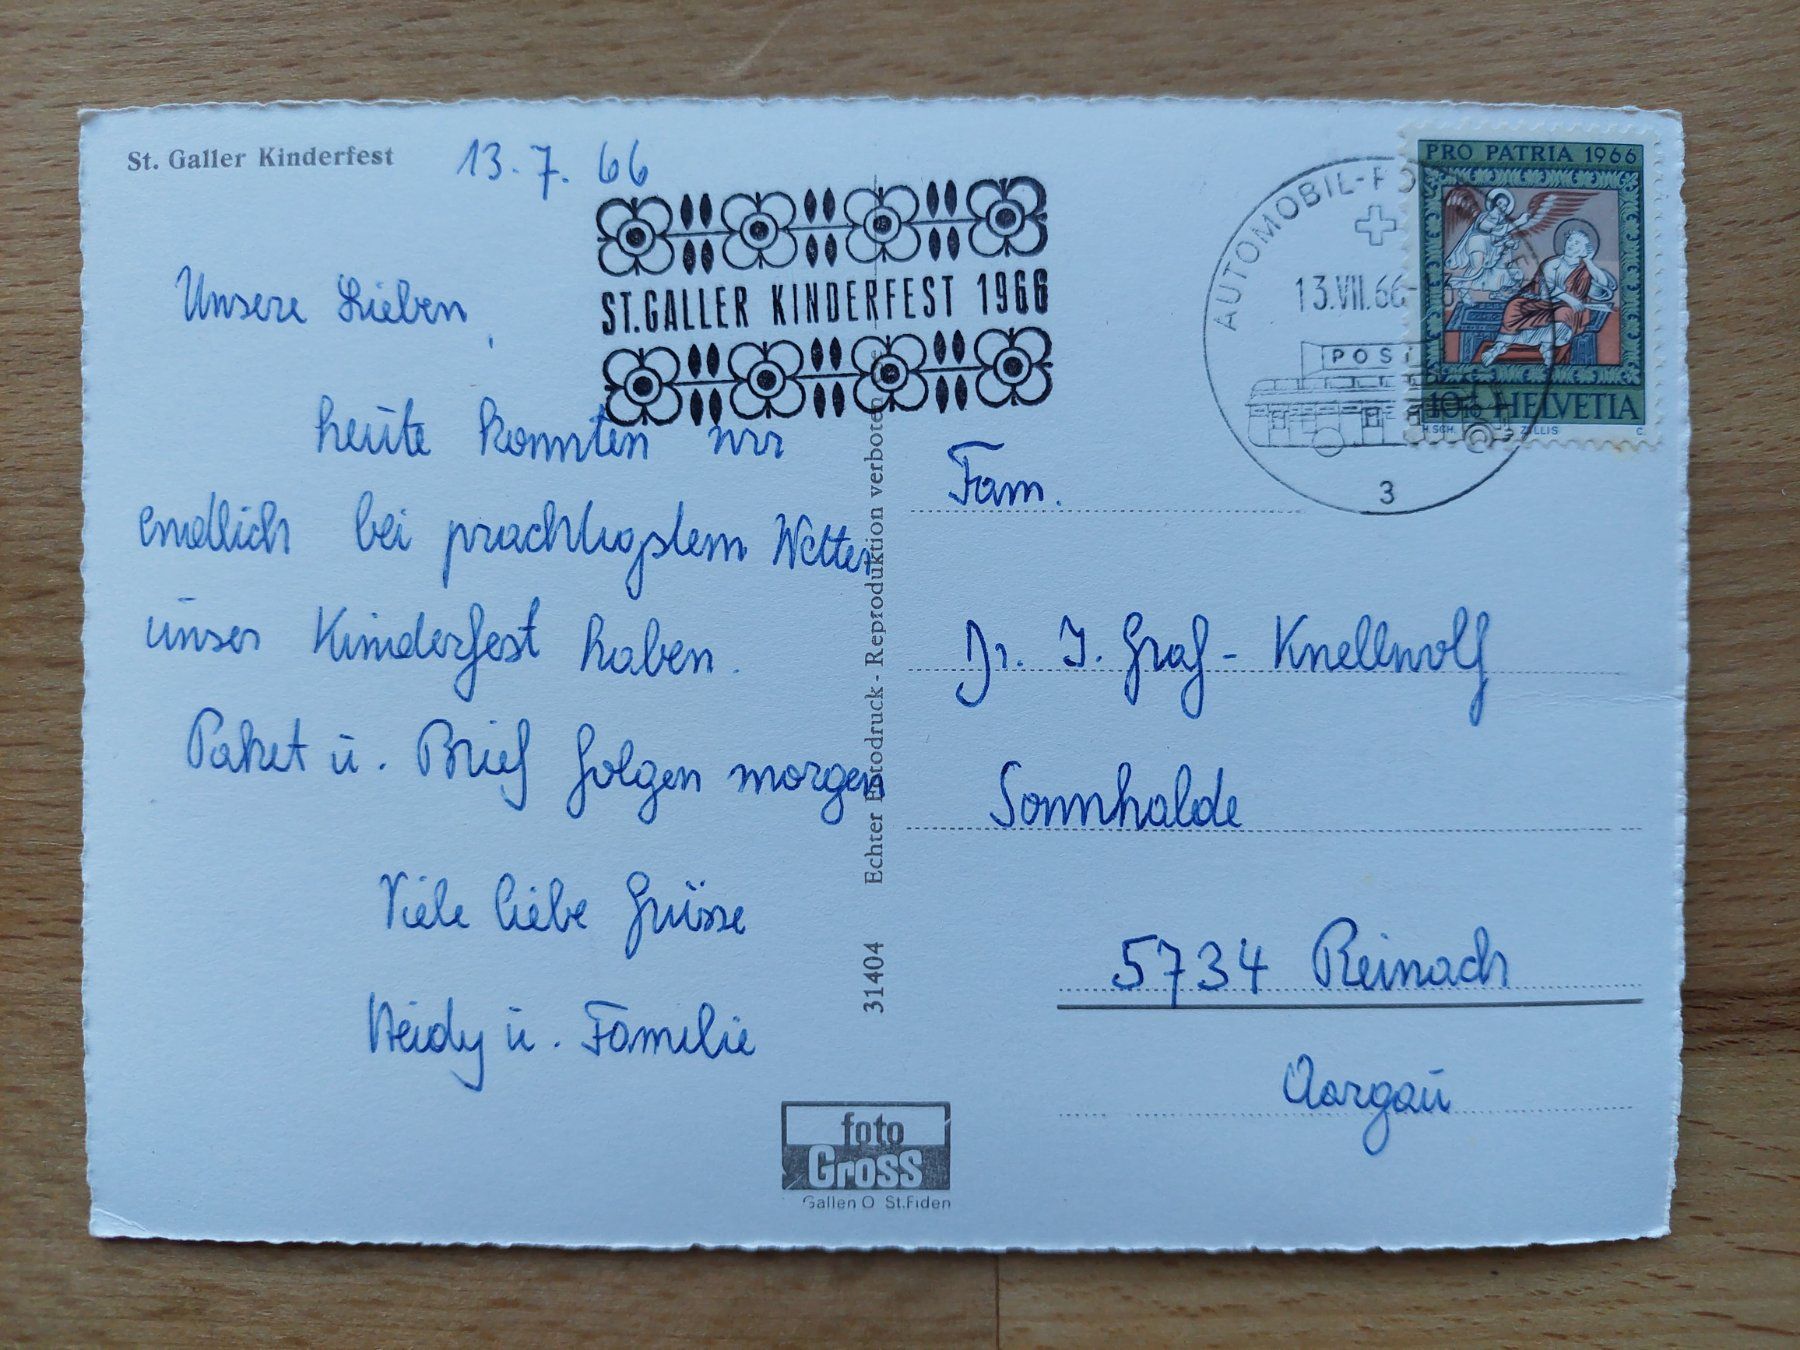 St. Galler Kinderfest
13.7.66
ST.GALLER KINDERFEST 1966
Unsere Lieben,
heute konnten wir
endlich bei prachtigstem Wetter
unser Kinderfest haben.
Paket u. Brief folgen morgen
Viele liebe Grüsse
Heidy u. Familie
31404 Echter Fotodruck - Reproduktion verboten
foto
Gross
Gallen O St.Fiden
AUTOMOBIL-PO
13.VII.66-
POST
3
PRO PATRIA 1966
10+10 HELVETIA
H.SCH. ZILLIS C.
Fam.
Dr. J. Graf - Knellwolf
Sonnhalde
5734 Reinach
Aargau